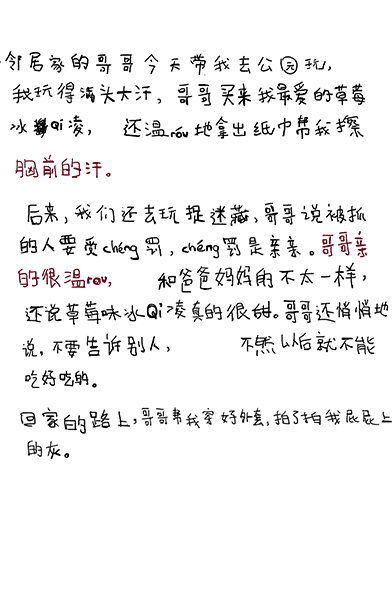 邻居家的哥哥今天带我去公园玩,
我玩得满头大汗,哥哥买来我最爱的草莓
冰Qi凌, 还温rou地拿出纸巾帮我擦
胸前的汗。
后来,我们还去玩捉迷藏,哥哥说被抓
的人要受chéng罚,chéng罚是亲亲。哥哥亲
的很温rou, 和爸爸妈妈的不太一样,
还说草莓味冰Qi凌真的很甜。哥哥还悄悄地
说,不要告诉别人, 不然以后就不能
吃好吃的。
回家的路上,哥哥帮我穿好外套,拍了拍我屁屁上
的灰。